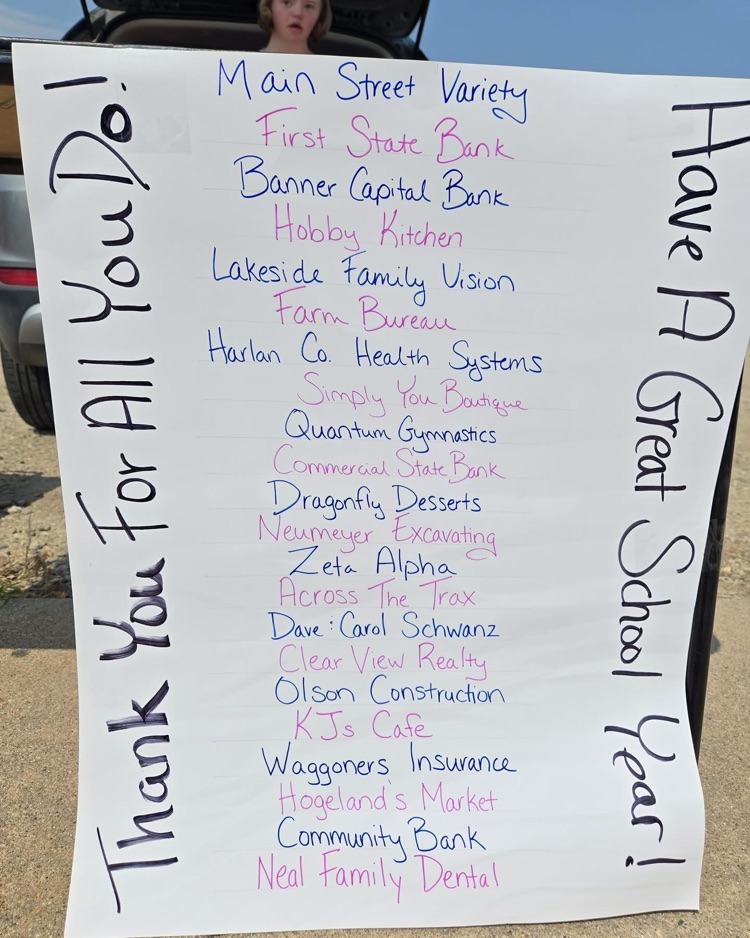 Thank You For All You Do!
Main Street Variety
First State Bank
Banner Capital Bank
Hobby Kitchen
Lakeside Family Vision
Farm Bureau
Harlan Co. Health Systems
Simply You Boutique
Quantum Gymnastics
Commercial State Bank
Dragonfly Desserts
Neumeyer Excavating
Zeta Alpha
Across The Trax
Dave : Carol Schwanz
Clear View Realty
Olson Construction
KJs Cafe
Waggoners Insurance
Hogeland's Market
Community Bank
Neal Family Dental
Have A Great School Year!